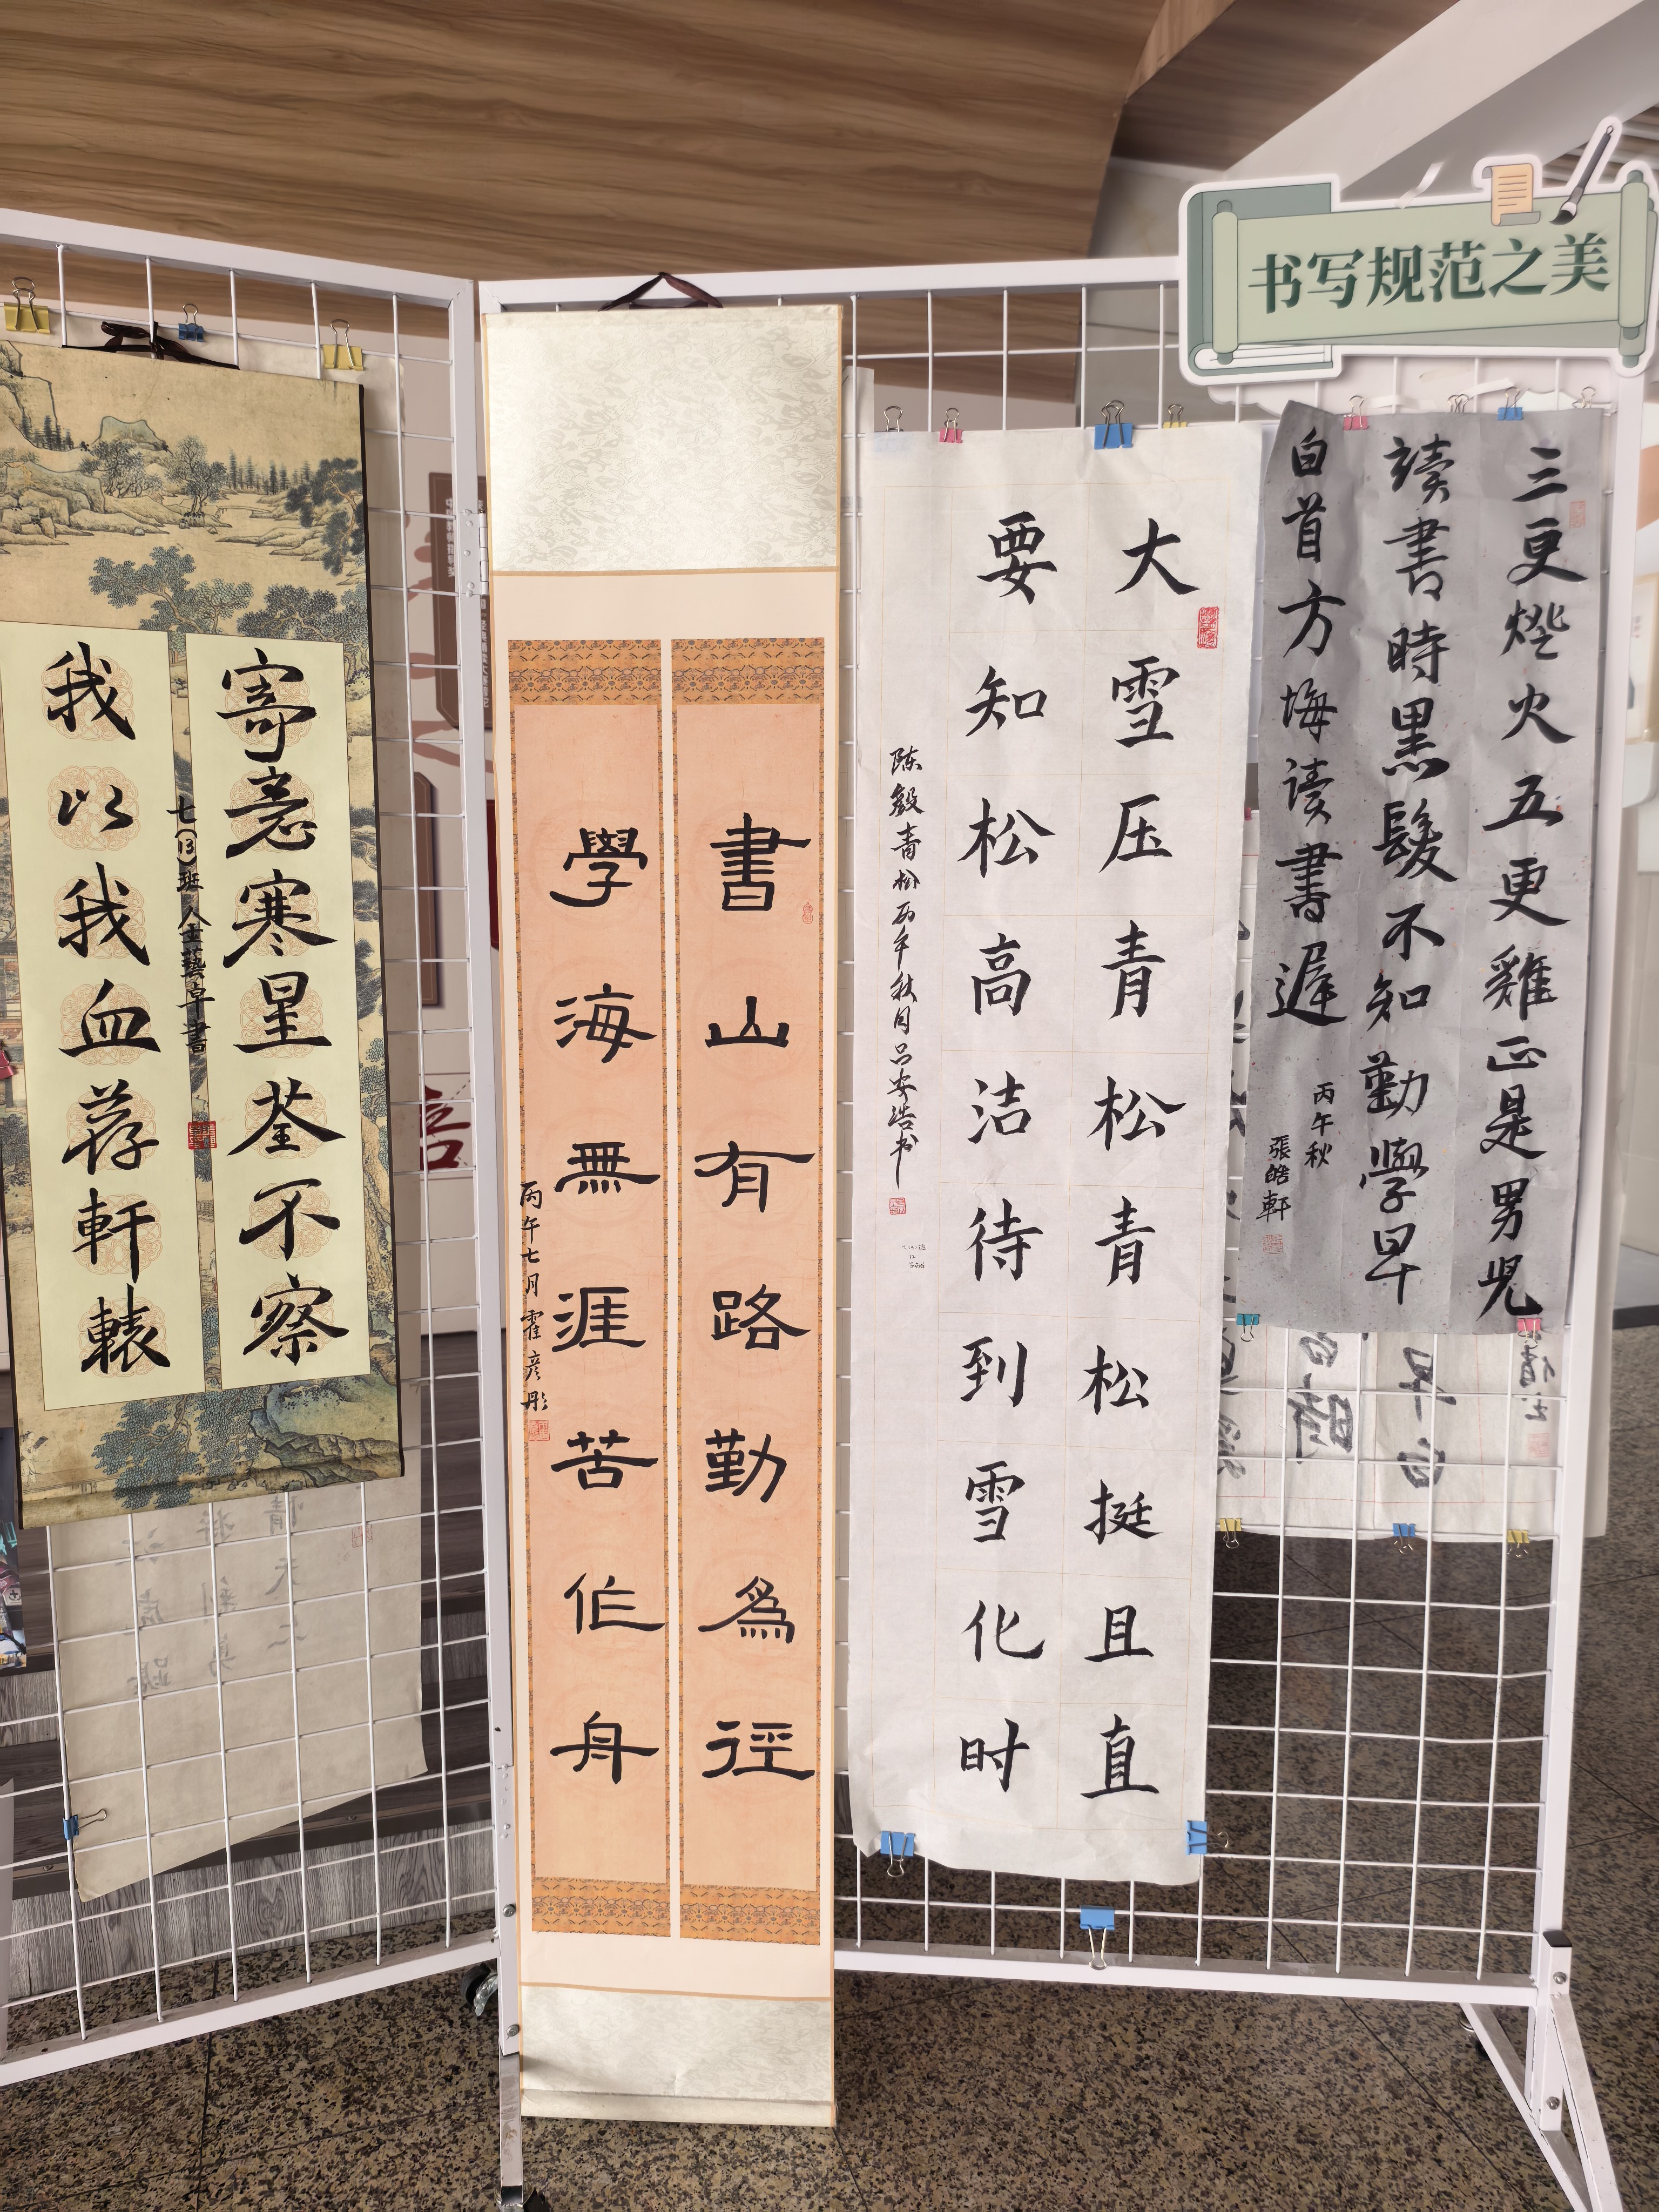 书写规范之美
三更燈火五更雞正是男児
讀書時黑髮不知勤學早
白首方悔读書遲
丙午秋
張皓軒
大雪压青松青松挺且直
要知松高洁待到雪化时
陈毅青松丙午秋月吕安浩书
書山有路勤為徑
學海無涯苦作舟
丙午七月霍彦彤
寄意寒星荃不察
我以我血荐軒轅
七(13)班金藝卓書